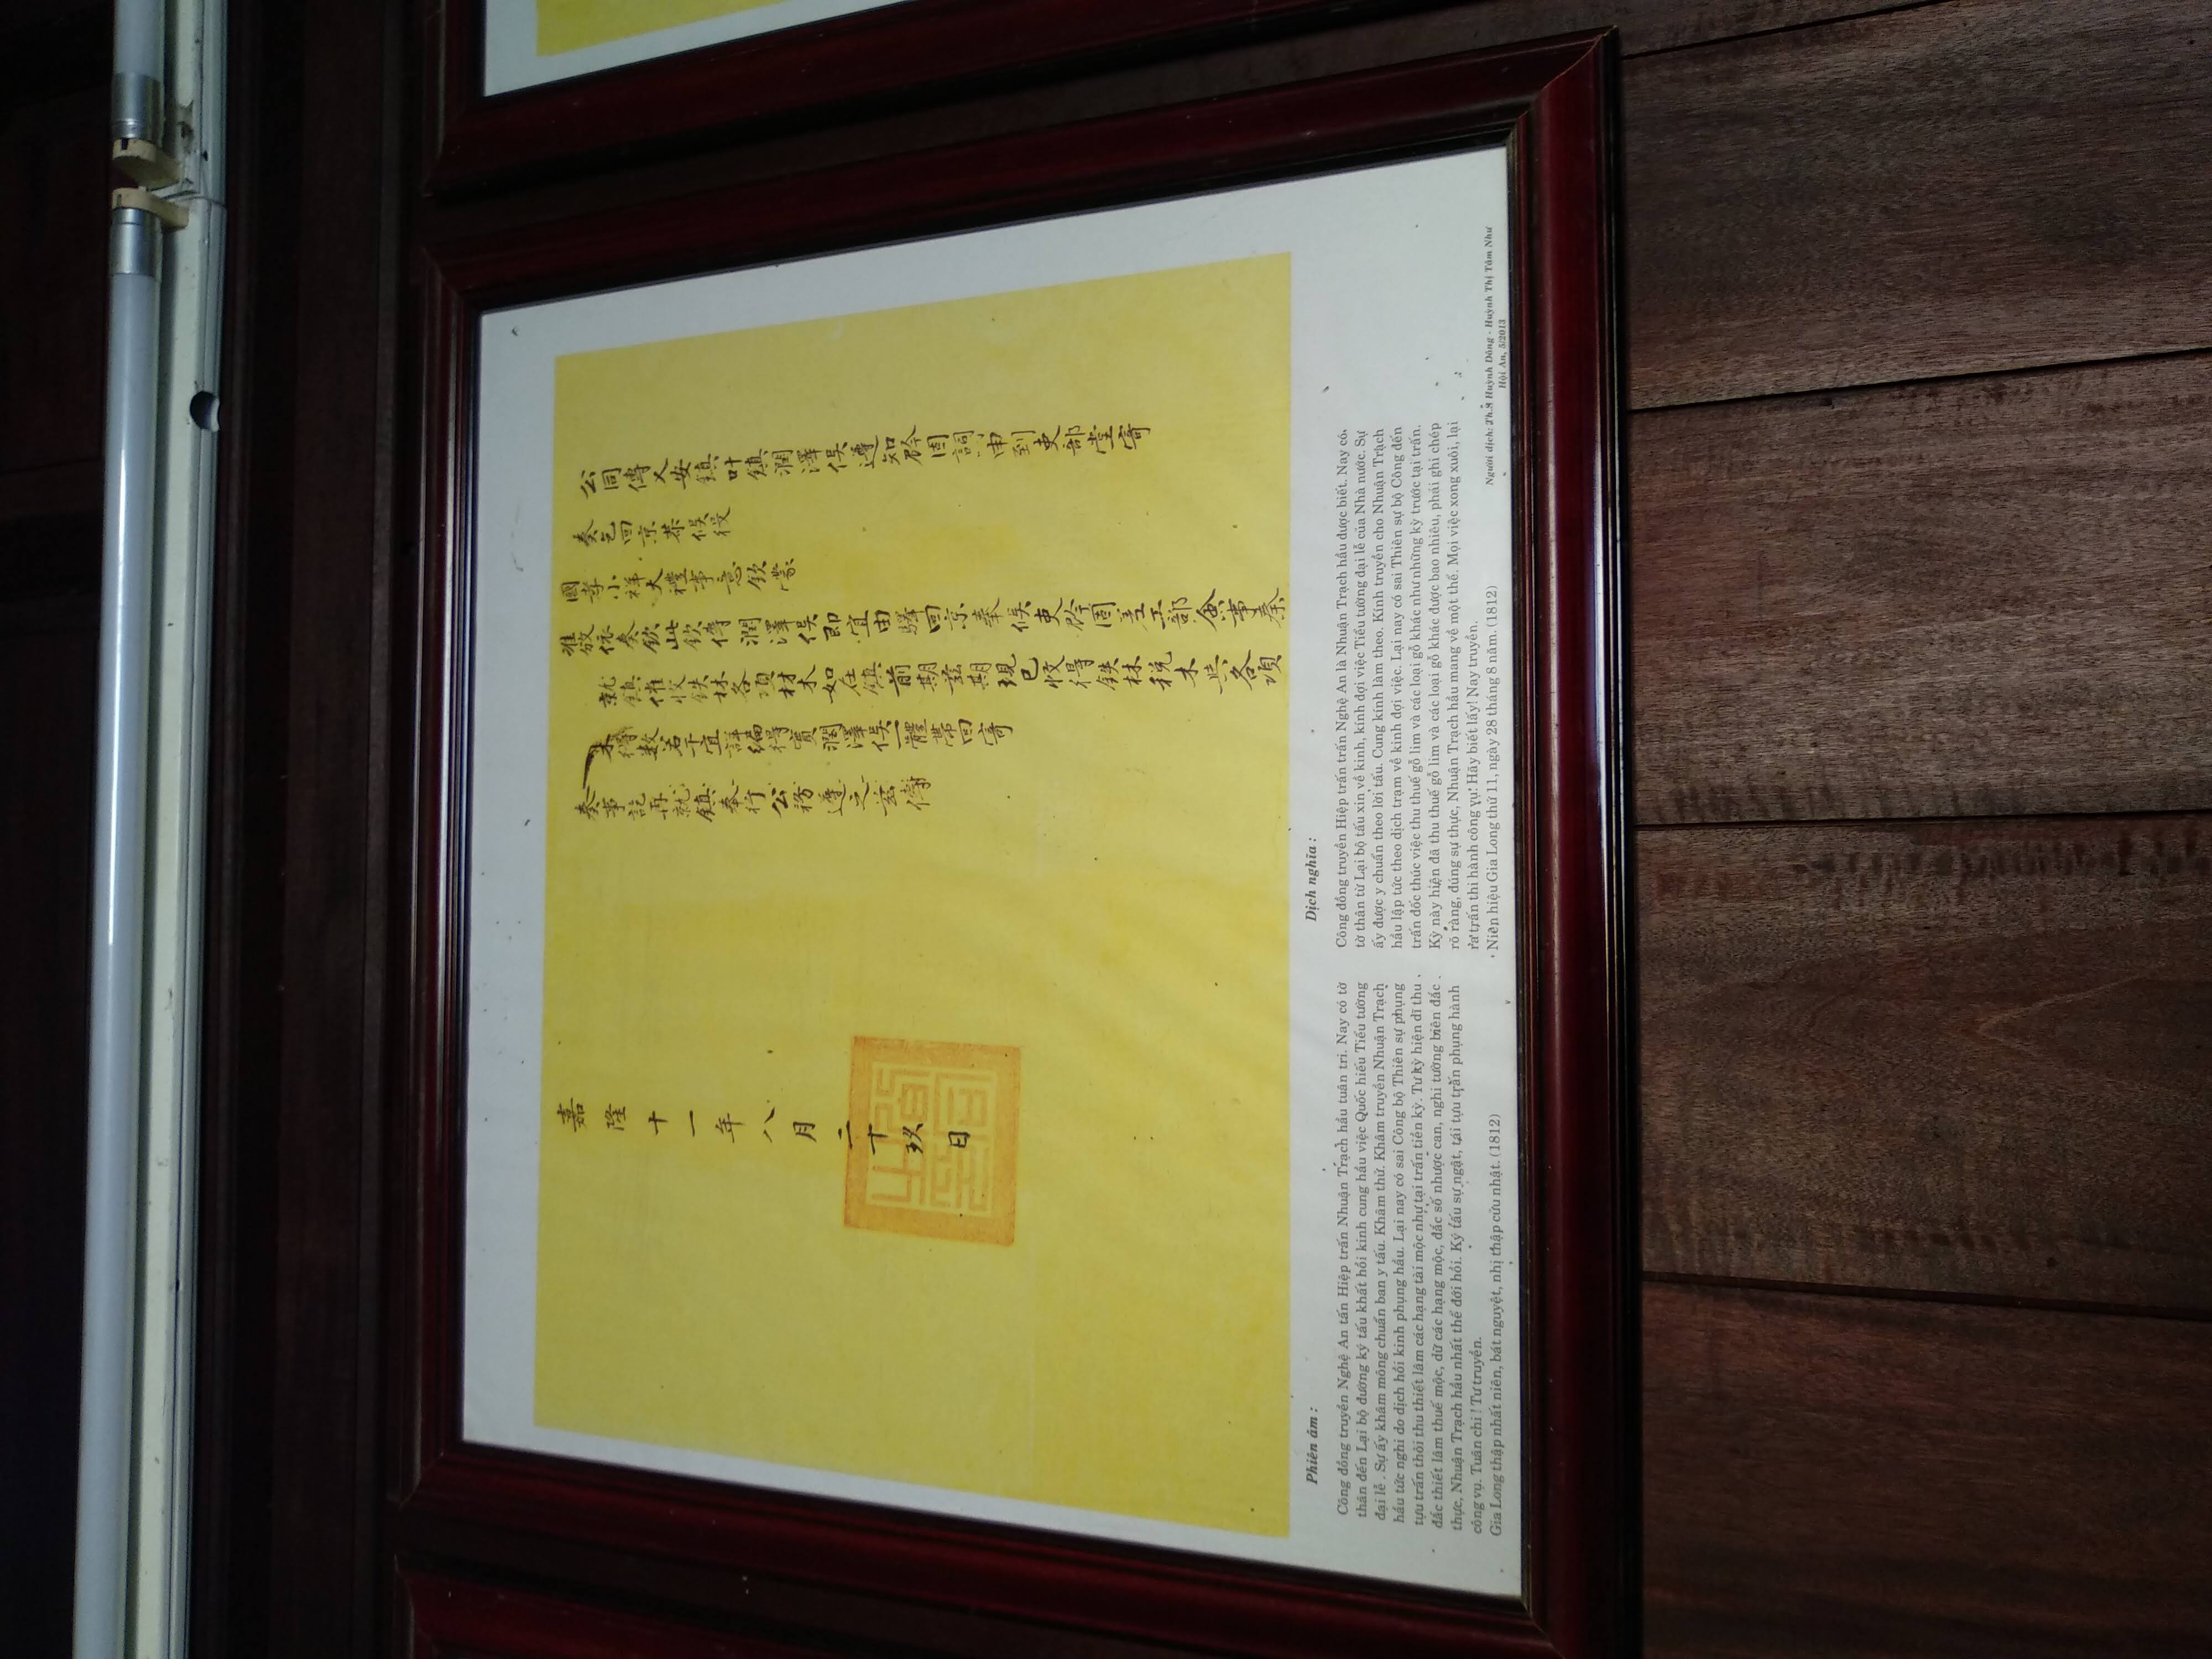 公同傳乂安鎮叶鎮潤澤侯遵知𫢋固詞申到吏部堂寄
奏乞回京恭候役
國孝小祥大禮事意欽蒙
準放依奏欽此欽傳潤澤侯即宜由驛回京奉候吏𫢋固差工部僉事奏
就鎮催收鉄林各項材木如在鎮前期茲期現已收得鉄林税木與各項
木得數若干宜詳編得實潤澤侯一體帶回寄
奏事訖再就鎮奉行公務遵之茲傳
嘉隆十一年八月二十玖日
Phiên âm :
Công đồng truyền Nghệ An tấn Hiệp trấn Nhuận Trạch hầu tuân tri. Nay có tờ
thân đến Lại bộ đường ký tấu khất hồi kinh cung hầu việc Quốc hiếu Tiểu tường
đại lễ . Sự ấy khâm mông chuẩn ban y tấu. Khâm thử. Khâm truyền Nhuận Trạch
hầu tức nghi do dịch hồi kinh phụng hầu. Lại nay có sai Công bộ Thiên sự phụng
tựu trấn thôi thu thiết lâm các hạng tài mộc như tại trấn tiền kỳ. Tư kỳ hiện dĩ thu
đắc thiết lâm thuế mộc, dữ các hạng mộc, đắc số nhược can, nghi tường biên đắc
thực, Nhuận Trạch hầu nhất thể đới hồi. Ký tấu sự ngật, tái tựu trấn phụng hành
công vụ. Tuân chi ! Tư truyền.
Gia Long thập nhất niên, bát nguyệt, nhị thập cửu nhật. (1812)
Dịch nghĩa :
Công đồng truyền Hiệp trấn trấn Nghệ An là Nhuận Trạch hầu được biết. Nay có
tờ thân từ Lại bộ tấu xin về kinh, kính đợi việc Tiểu tường đại lễ của Nhà nước. Sự
ấy được y chuẩn theo lời tấu. Cung kính làm theo. Kính truyền cho Nhuận Trạch
hầu lập tức theo dịch trạm về kinh đợi việc. Lại nay có sai Thiên sự bộ Công đến
trấn đốc thúc việc thu thuế gỗ lim và các loại gỗ khác như những kỳ trước tại trấn.
Kỳ này hiện đã thu thuế gỗ lim và các loại gỗ khác được bao nhiêu, phải ghi chép
rõ ràng, đúng sự thực, Nhuận Trạch hầu mang về một thể. Mọi việc xong xuôi, lại
ra trấn thi hành công vụ! Hãy biết lấy! Nay truyền.
Niên hiệu Gia Long thứ 11, ngày 28 tháng 8 năm. (1812)
Người dịch: Th.S Huỳnh Dõng - Huỳnh Thị Tâm Như
Hội An, 5/2013